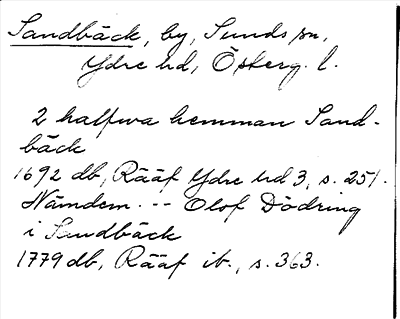 Sandbäck, by, Sunds sn,
Ydre hd, Österg. l.
2 halfwa hemman Sand-
bäck
1692 db, Rääf Ydre hd 3, s. 251.
Nämdem. -- Olof Dödring
i Sandbäck
1779 db, Rääf ib., s. 363.